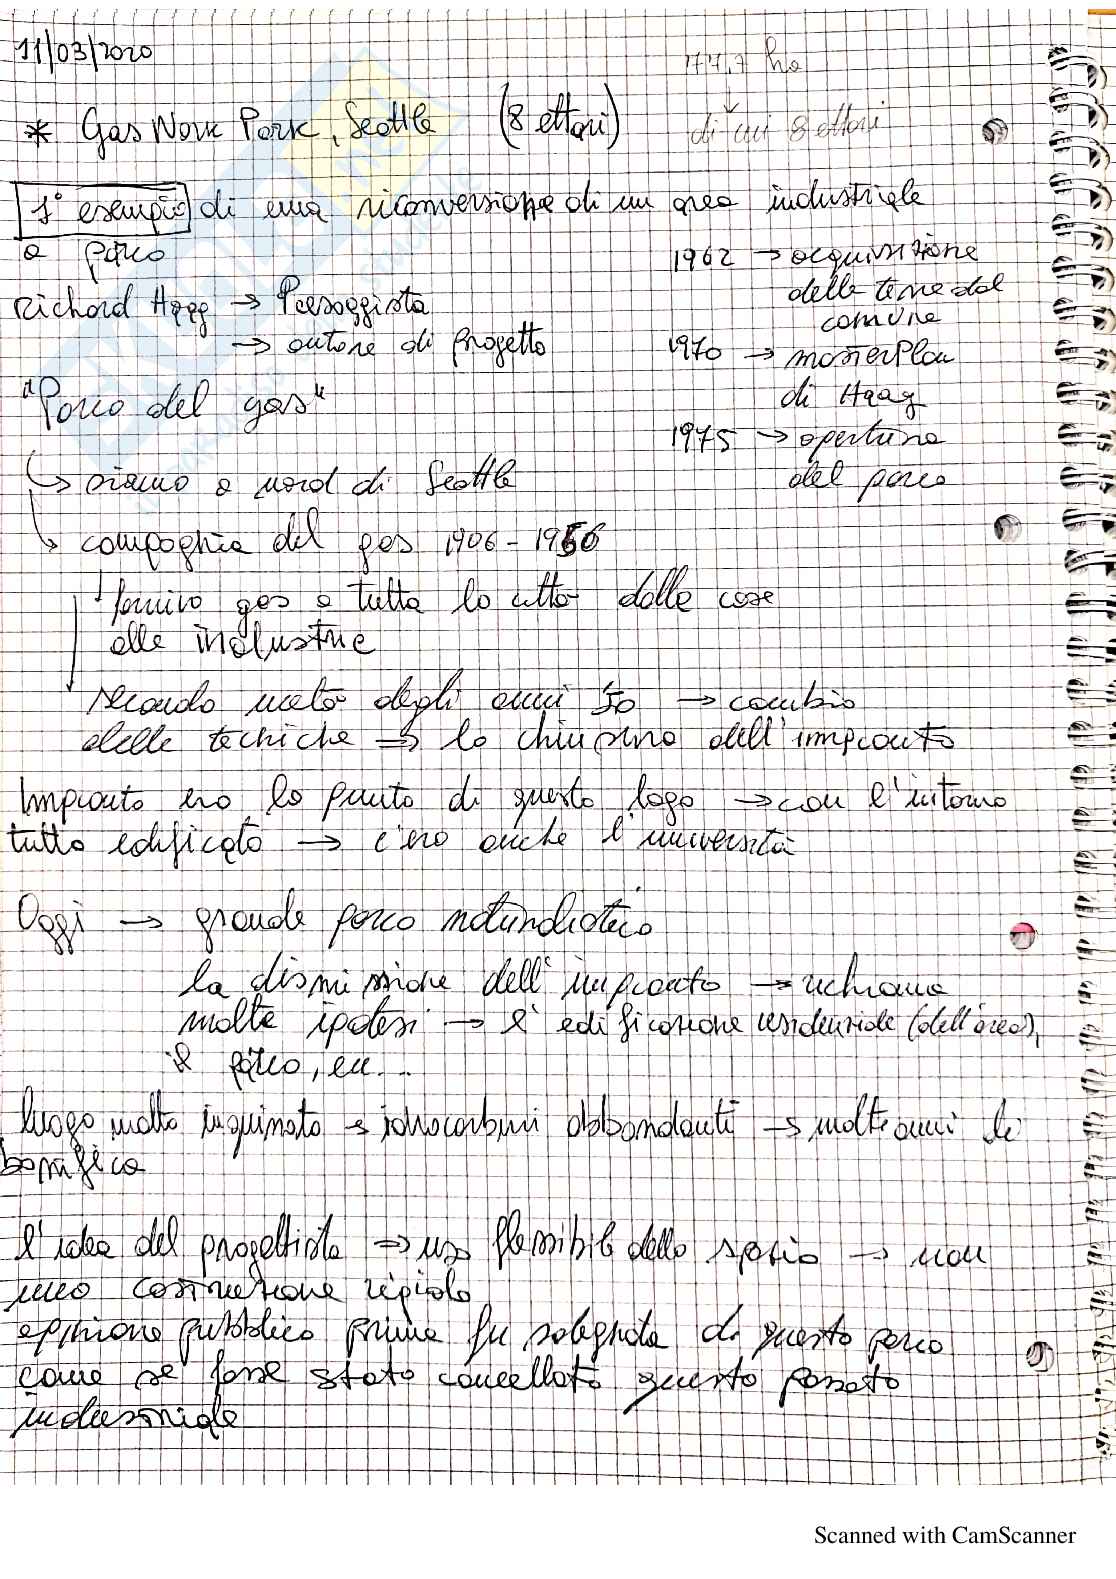 11/03/2020
177,7 ha
* Gas Work Park, Seattle (8 ettari)
di cui 8 ettari
1° esempio di una riconversione di un area industriale
a parco
1962 → acquisizione
delle terre dal
comune
Richard Haag → Paesaggista
→ autore di progetto
1970 → masterplan
di Haag
"Parco del gas"
1975 → apertura
del parco
↳ siamo a nord di Seattle
↳ compaghia del gas 1906 - 1956
↓ forniva gas a tutta la città dalle case
alle industrie
seconda metà degli anni 50 → cambio
delle techiche → la chiusura dell'impianto
Impianto era la punta di questo lago → con l'intorno
tutto edificato → c'era anche l'università
Oggi → grande parco
la dismissione dell'impianto → richiama
molte ipotesi → l'edificazione residenziale (dell'area),
il parco, ecc...
luogo molto inquinato → idrocarburi abbondanti → molte anni di
bonifica
l'idea del progettista → uso flessibile dello spazio → non
una costruzione rigida
opinione pubblica prima fu sdegnata di questo parco
come se fosse stato cancellato questo passato
industriale
Scanned with CamScanner